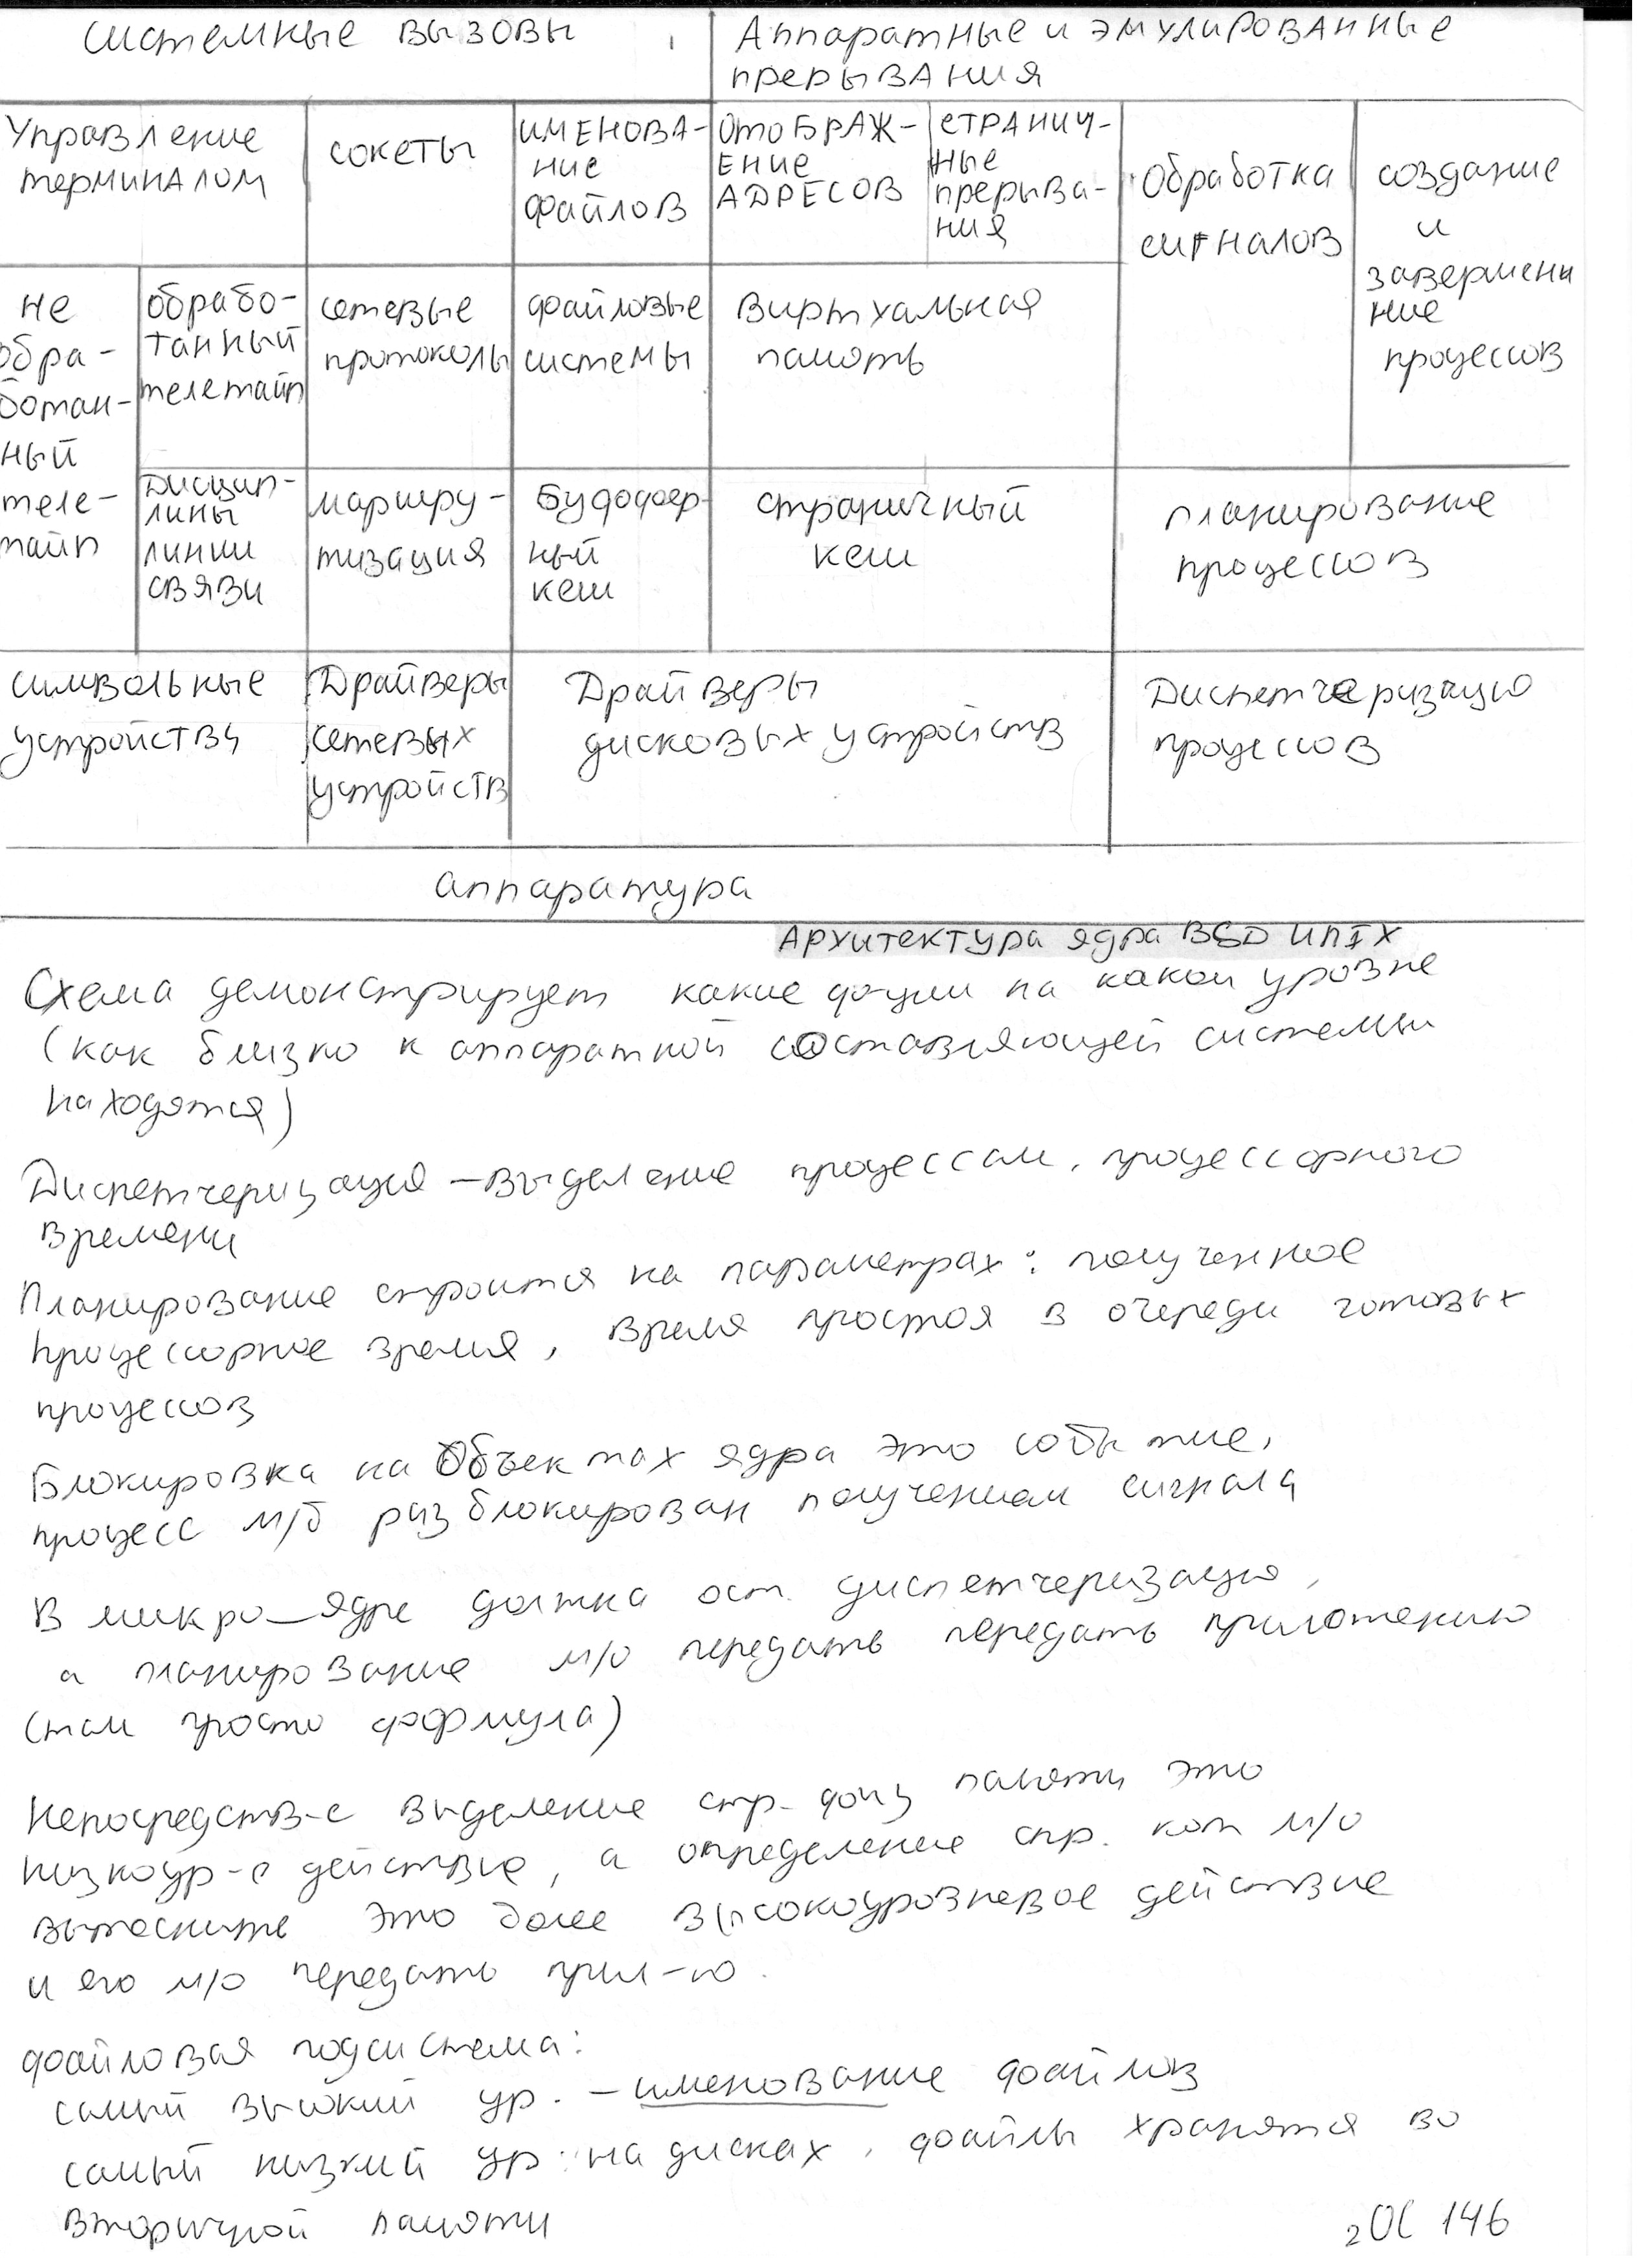 системные вызовы
Аппаратные и эмулированные
прерывания
Управление
терминалом
сокеты
именова-
ние
файлов
отображ-
ение
адресов
странич-
ные
прерыва-
ния
Обработка
сигналов
создание
и
завершени
ние
процессов
не
обра-
ботан-
ный
теле-
тайп
обрабо-
танный
телетайп
сетевые
протоколы
файловые
системы
Виртуальная
память
Дисцип-
лины
линии
связи
маршру-
тизация
Буффер-
ный
кеш
страничный
кеш
планирование
процессов
символьные
устройства
Драйверы
сетевых
устройств
Драйверы
дисковых устройств
Диспетчеризация
процессов
аппаратура
Архитектура ядра BSD UNIX
Схема демонстрирует какие фции на каком уровне
(как близко к аппаратной составляющей системы
находятся)
Диспетчеризация – выделение процессам, процессорного
времени
Планирование строится на параметрах: полученное
процессорное время, время простоя в очереди готовых
процессов
Блокировка на Объектах ядра это событие,
процесс м/б разблокирован получением сигнала
В микро-ядре должна ост. диспетчеризация,
а планирование м/о передать передать приложению
(там просто формула)
Непосредств-е выделение стр. физ памяти это
низкоур-е действие, а определение стр. кот м/о
вытеснить это более высокоуровневое действие
и его м/о передать прил-ю.
файловая подсистема:
самый высокий ур. – именование файлов
самый низкий ур: на дисках, файлы хранятся во
вторичной памяти
2 ОС 146